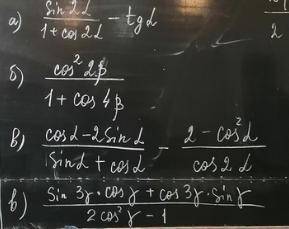 а) sin 2α / 1 + cos 2α - tg α
2
б) cos² 2β / 1 + cos 4β
в) cos α - 2 sin α / sin α + cos α - 2 - cos² α / cos 2α
в) sin 3γ · cos γ + cos 3γ · sin γ / 2 cos² γ - 1